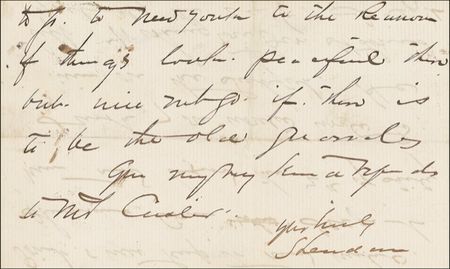 to go to New York to the Reunion
if things look peaceful there
but will not go if there is
to be the old quarrels
Give my kind
to Mrs Custer.
Yrs truly
Sheridan